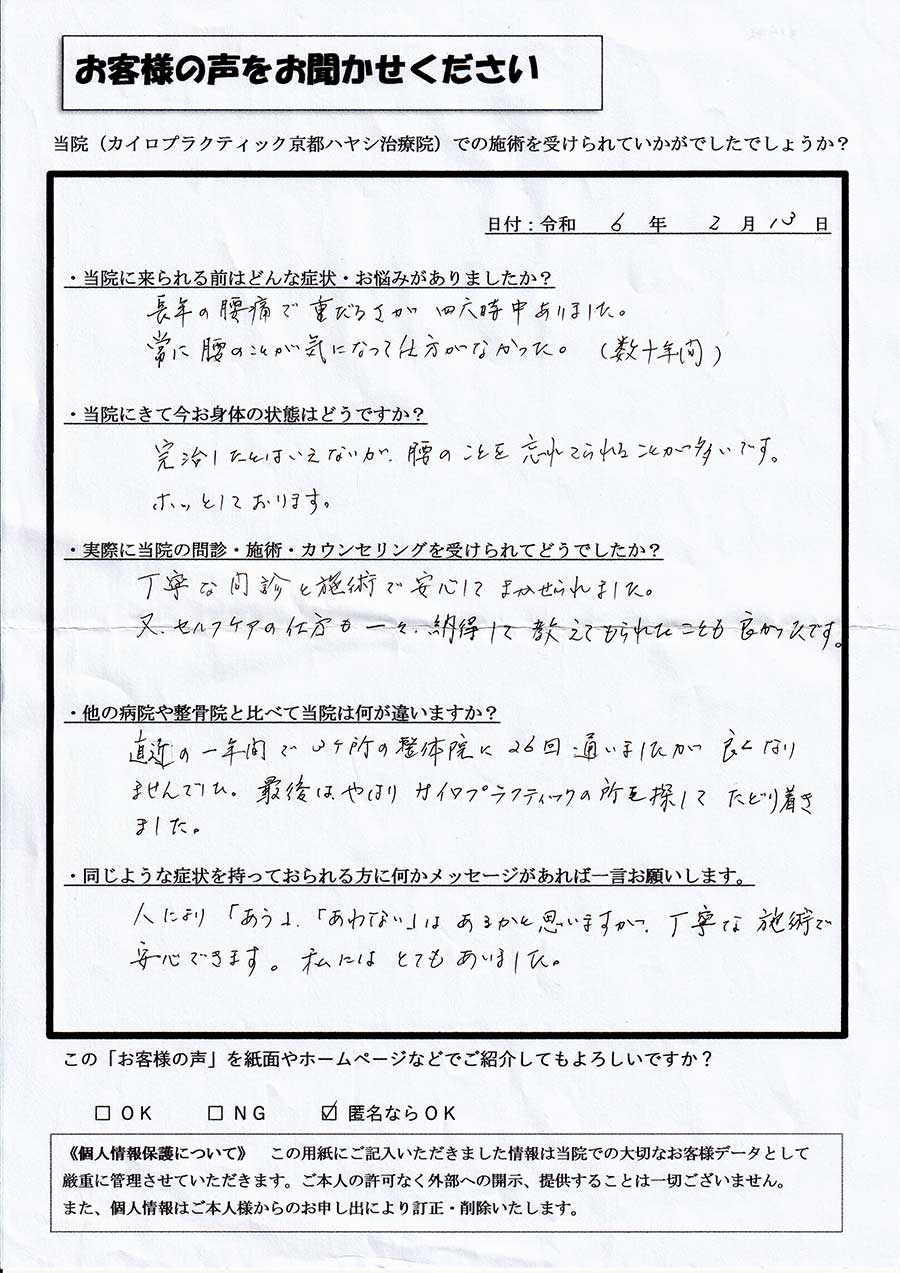 お客様の声をお聞かせください
当院（カイロプラクティック京都ハヤシ治療院）での施術を受けられていかがでしたでしょうか？
日付：令和 6 年 2 月 13 日
・当院に来られる前はどんな症状・お悩みがありましたか？
長年の腰痛で重だるさが四六時中ありました。
常に腰のことが気になって仕方がなかった。（数十年間）
・当院にきて今お身体の状態はどうですか？
完治したとはいえないが、腰のことを忘れてられることが多いです。
ホッとしております。
・実際に当院の問診・施術・カウンセリングを受けられてどうでしたか？
丁寧な問診と施術で安心してまかせられました。
又、セルフケアの仕方も一々、納得して教えてもられたことも良かったです。
・他の病院や整骨院と比べて当院は何が違いますか？
直近の一年間で3ケ所の整体院に26回通いましたが良くなり
ませんでした。最後は、やはりカイロプラクティックの所を探してたどり着き
ました。
・同じような症状を持っておられる方に何かメッセージがあれば一言お願いします。
人により「あう」、「あわない」はあるかと思いますが、丁寧な施術で
安心できます。私にはとてもあいました。
この「お客様の声」を紙面やホームページなどでご紹介してもよろしいですか？
□ OK □ NG ☑ 匿名ならOK
《個人情報保護について》 この用紙にご記入いただきました情報は当院での大切なお客様データとして
厳重に管理させていただきます。ご本人の許可なく外部への開示、提供することは一切ございません。
また、個人情報はご本人様からのお申し出により訂正・削除いたします。